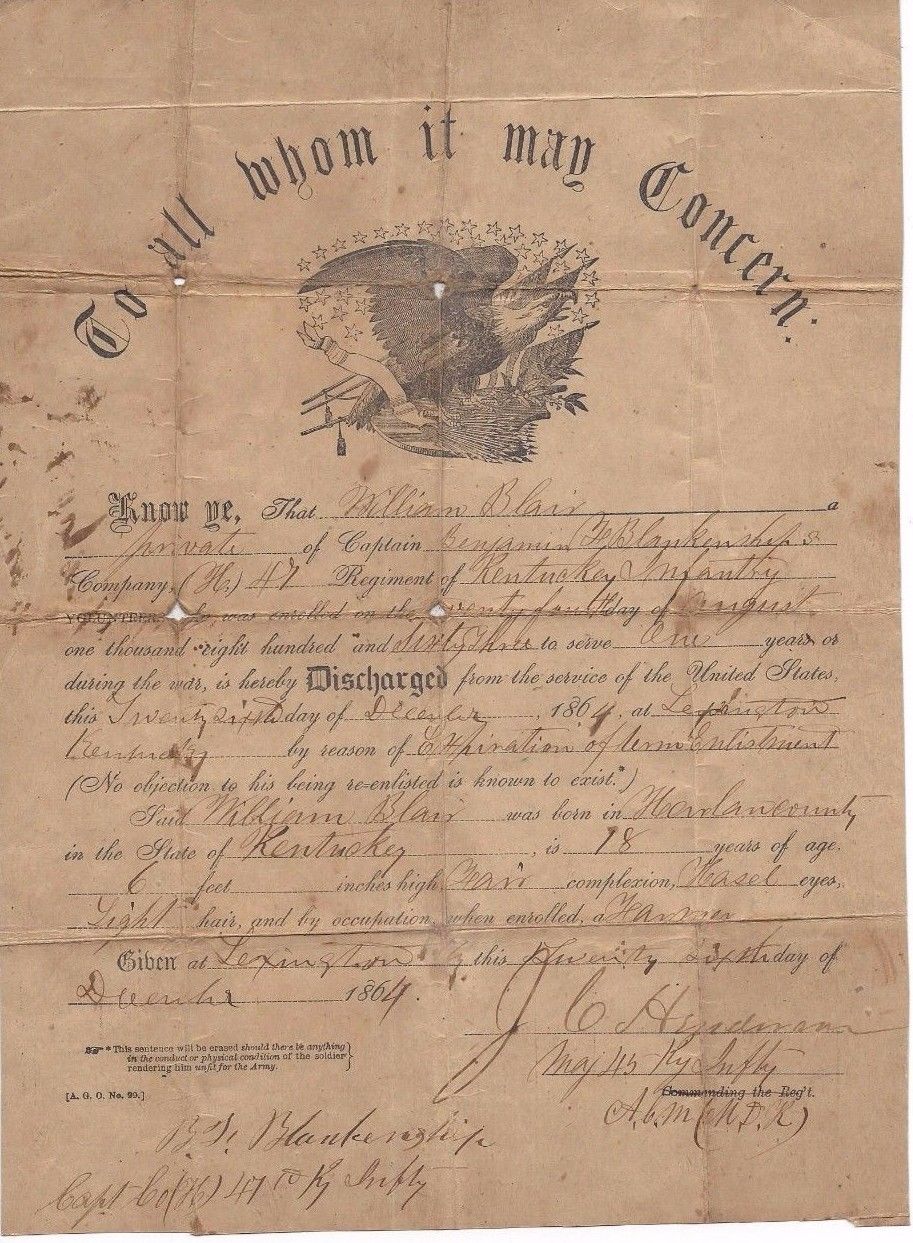 To all whom it may Concern:
Know ye, That William Blair a
private of Captain Benjamin F Blankenship's
Company, (H.) 47 Regiment of Kentuckey Infantry
VOLUNTEERS was enrolled on the twenty fourth day of August
one thousand eight hundred and sixty three to serve One years or
during the war, is hereby Discharged from the service of the United States,
this Twenty sixth day of December, 1864, at Lexington
Kentucky by reason of Expiration of term Enlistment
(No objection to his being re-enlisted is known to exist.*)
Said William Blair was born in Harlan county
in the State of Kentuckey, is 18 years of age,
6 feet inches high, Fair complexion, Hasel eyes,
Light hair, and by occupation, when enrolled, a Farmer
Given at Lexington Ky this Twenty Sixth day of
December 1864.
J C
Maj 45 Ky Infty
Commanding the Reg't.
*This sentence will be erased should there be anything
in the conduct or physical condition of the soldier
rendering him unfit for the Army.
[A. G. O. No. 99.]
B. F. Blankenship
Capt Co (H) 47th Ky Infty